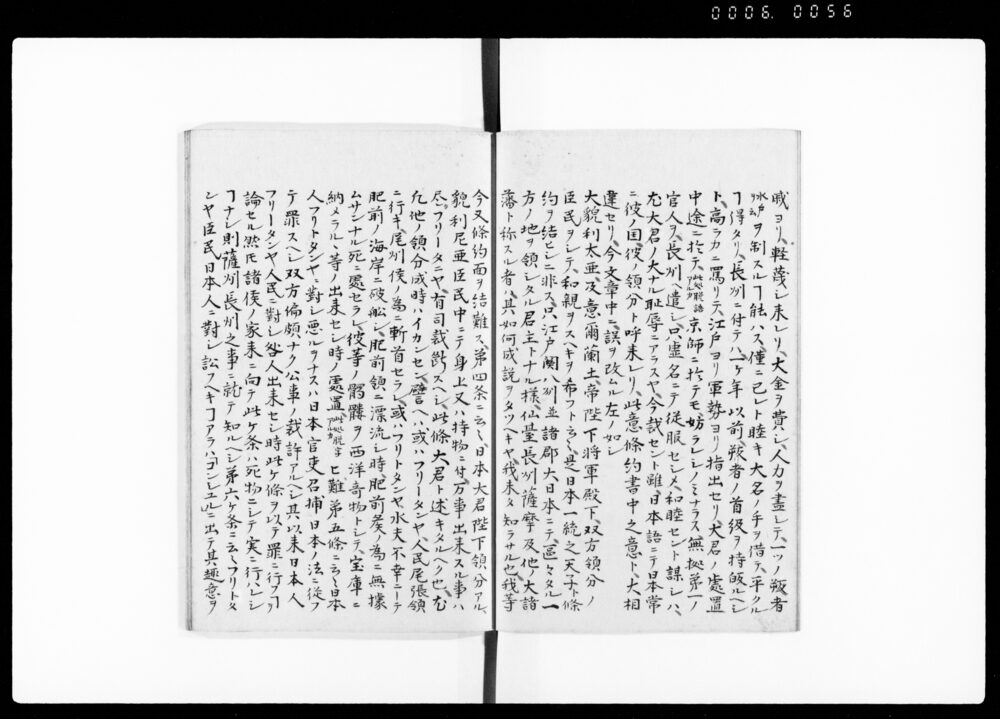 0006. 0056
戚ヨリ、軽蔑シ来レリ、大金ヲ費シ、人力ヲ盡シテ、一ツノ叛者
ヲ制スルヿ能ハス、僅ニ己レト睦キ大名ノ手ヲ借テ、平クル
ヿ得タリ、長州ニ付テハ一ケ年以前叛者ノ首級ヲ持皈ルヘシ
ト、高ラカニ罵リテ、江戸ヨリ軍勢ヨリ指出セリ、大君ノ處置
中途ニ於テ、此処脱語アルカ京師ニ於テモ妨ラレシノミナラス、無拠第一ノ
官人ヲ長州ヘ遣シ、只虚名ニテ従服セシメ、和睦セント謀シハ、
尤大君ノ大ナル恥辱ニアラスヤ、今哉セント雖日本語ニテ日本常
ニ彼ノ国、彼ノ領分ト呼来レリ、此意條約書中之意ト、大相
違セリ、今文章中ニ、誤ヲ改ムル左ノ如シ
大貌利太亜、及意爾蘭土、帝陛下将軍殿下、双方領分ノ
臣民ヲシテ、和親ヲスヘキヲ希フト云々、是日本一統之天子ト條
約ヲ結ヒシニ非ス、只江戸関八州並諸郡大日本ニテ、區々タル一
方ノ地ヲ領シタル君主トナル様、仙臺長州薩摩及他ノ大諸
藩ト称スル者ハ、其如何成説ヲタツヘキヤ、我未タ知ラサル也、我等
今又條約面ヲ結難ス、第四条ニ云々日本大君陛下領分アル、
貌利尼亜臣民中ニテ、身上又ハ持物ニ付、万事出来スル事ハ
尽フリータニヤ、有司裁断スヘシ、此條大君ト述キタルヘク也、尤
允他ノ領分成時ハイカンセン、譬ヘハ或ハフリータンヤ、人民尾張領
ニ行キ、尾州侯ノ為ニ斬首セラレ、或ハフリトタンヤ水夫不幸ニシテ
肥前ノ海岸ニ破舩シ、肥前領ニ漂流シ時、肥前矦ノ為ニ無據
ムサンナル死ニ處セラレ、彼等ノ髑髏ヲ西洋奇物トシテ、宝庫ニ
納メラル、等ノ出来セシ時ノ處置此処脱字アルカヒ難第五條ニ云々日本
人フリトタンヤニ對シ悪ルヲナスハ日本官吏召捕日本ノ法ニ従フ
テ罪スヘシ双方偏頗ナク公事ノ裁許アルヘシ其以来日本人
フリータンヤ人民ニ對シ咎人出来セシ時此ケ條ヲ以テ罪ニ行フヲ
論セル然氏諸侯ノ家来ニ向テ此ケ条ハ死物ニシテ実ニ行ハルヽ
ヿナシ則薩州長州之事ニ就テ知ルヘシ第六ケ条ニ云々フリトタ
ンヤ臣民日本人ニ對シ訟フヘキヿアラハ「コンシュル」ニ出テ其趣意ヲ